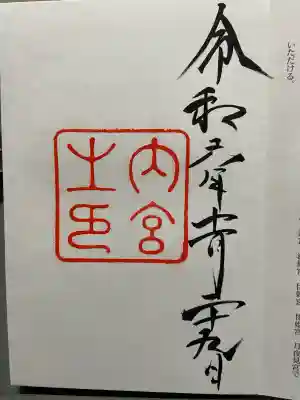 いただける。
令和五年十一月二十九日
内宮
之印